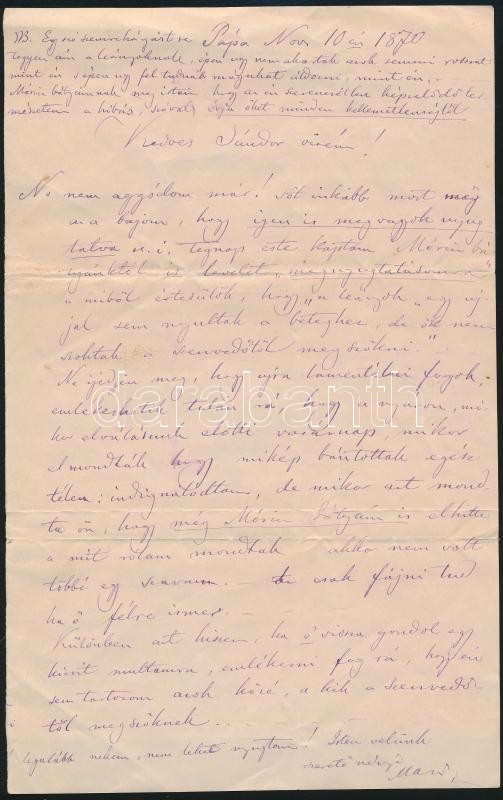 NB. Egy szó szemrehányást se Pápa Nov 10 én 1870
tegyen ám a leányoknak, épen úgy nem akartak azok semmi rosszat
mint én s épen úgy fel tudnák magukat áldozni, mint én. -
Móricz bátyámnak megírtam hogy az én szerencsétlen képzelődő ter-
mészetem a hibás, szóval óvja őket minden kellemetlenségtől
Kedves Sándor öcsém!
No nem aggódom már! Sőt inkább most meg
az a bajom, hogy igen is meg vagyok nyug
tatva u. i. tegnap este kaptam Móricz bá
tyánktól is levelet "megnyugtatásomra"
a miből értesülök, hogy "a leányok" egy új-
jal sem nyultak a beteghez, de ők nem
szoktak a szenvedőtől megszökni." -
Ne ijedjen meg, hogy ujra lamentálni fogok,
emlékezhetik talán rá, hogy a nyáron, mi-
kor elválásunk előtti vasárnap, mikor
elmondták hogy mikép bántottak egész
télen: indignálódtam, de mikor azt mond
ta ön, hogy még Móricz bátyám is elhitte
a mit rólam mondtak akkor nem volt
többé egy szavam. - csak fájni tud
ha ő félre ismer. -
Különben azt hiszem, ha ő vissza gondol egy
kicsit multamra, emlékezni fog rá, hogy én
sem tartozom azok közé, a kik a szenvedő
től megszöknek. . .
legalább nekem, nem lehet nyugtom! Isten velünk
szerető nénje
Mari
darabanth